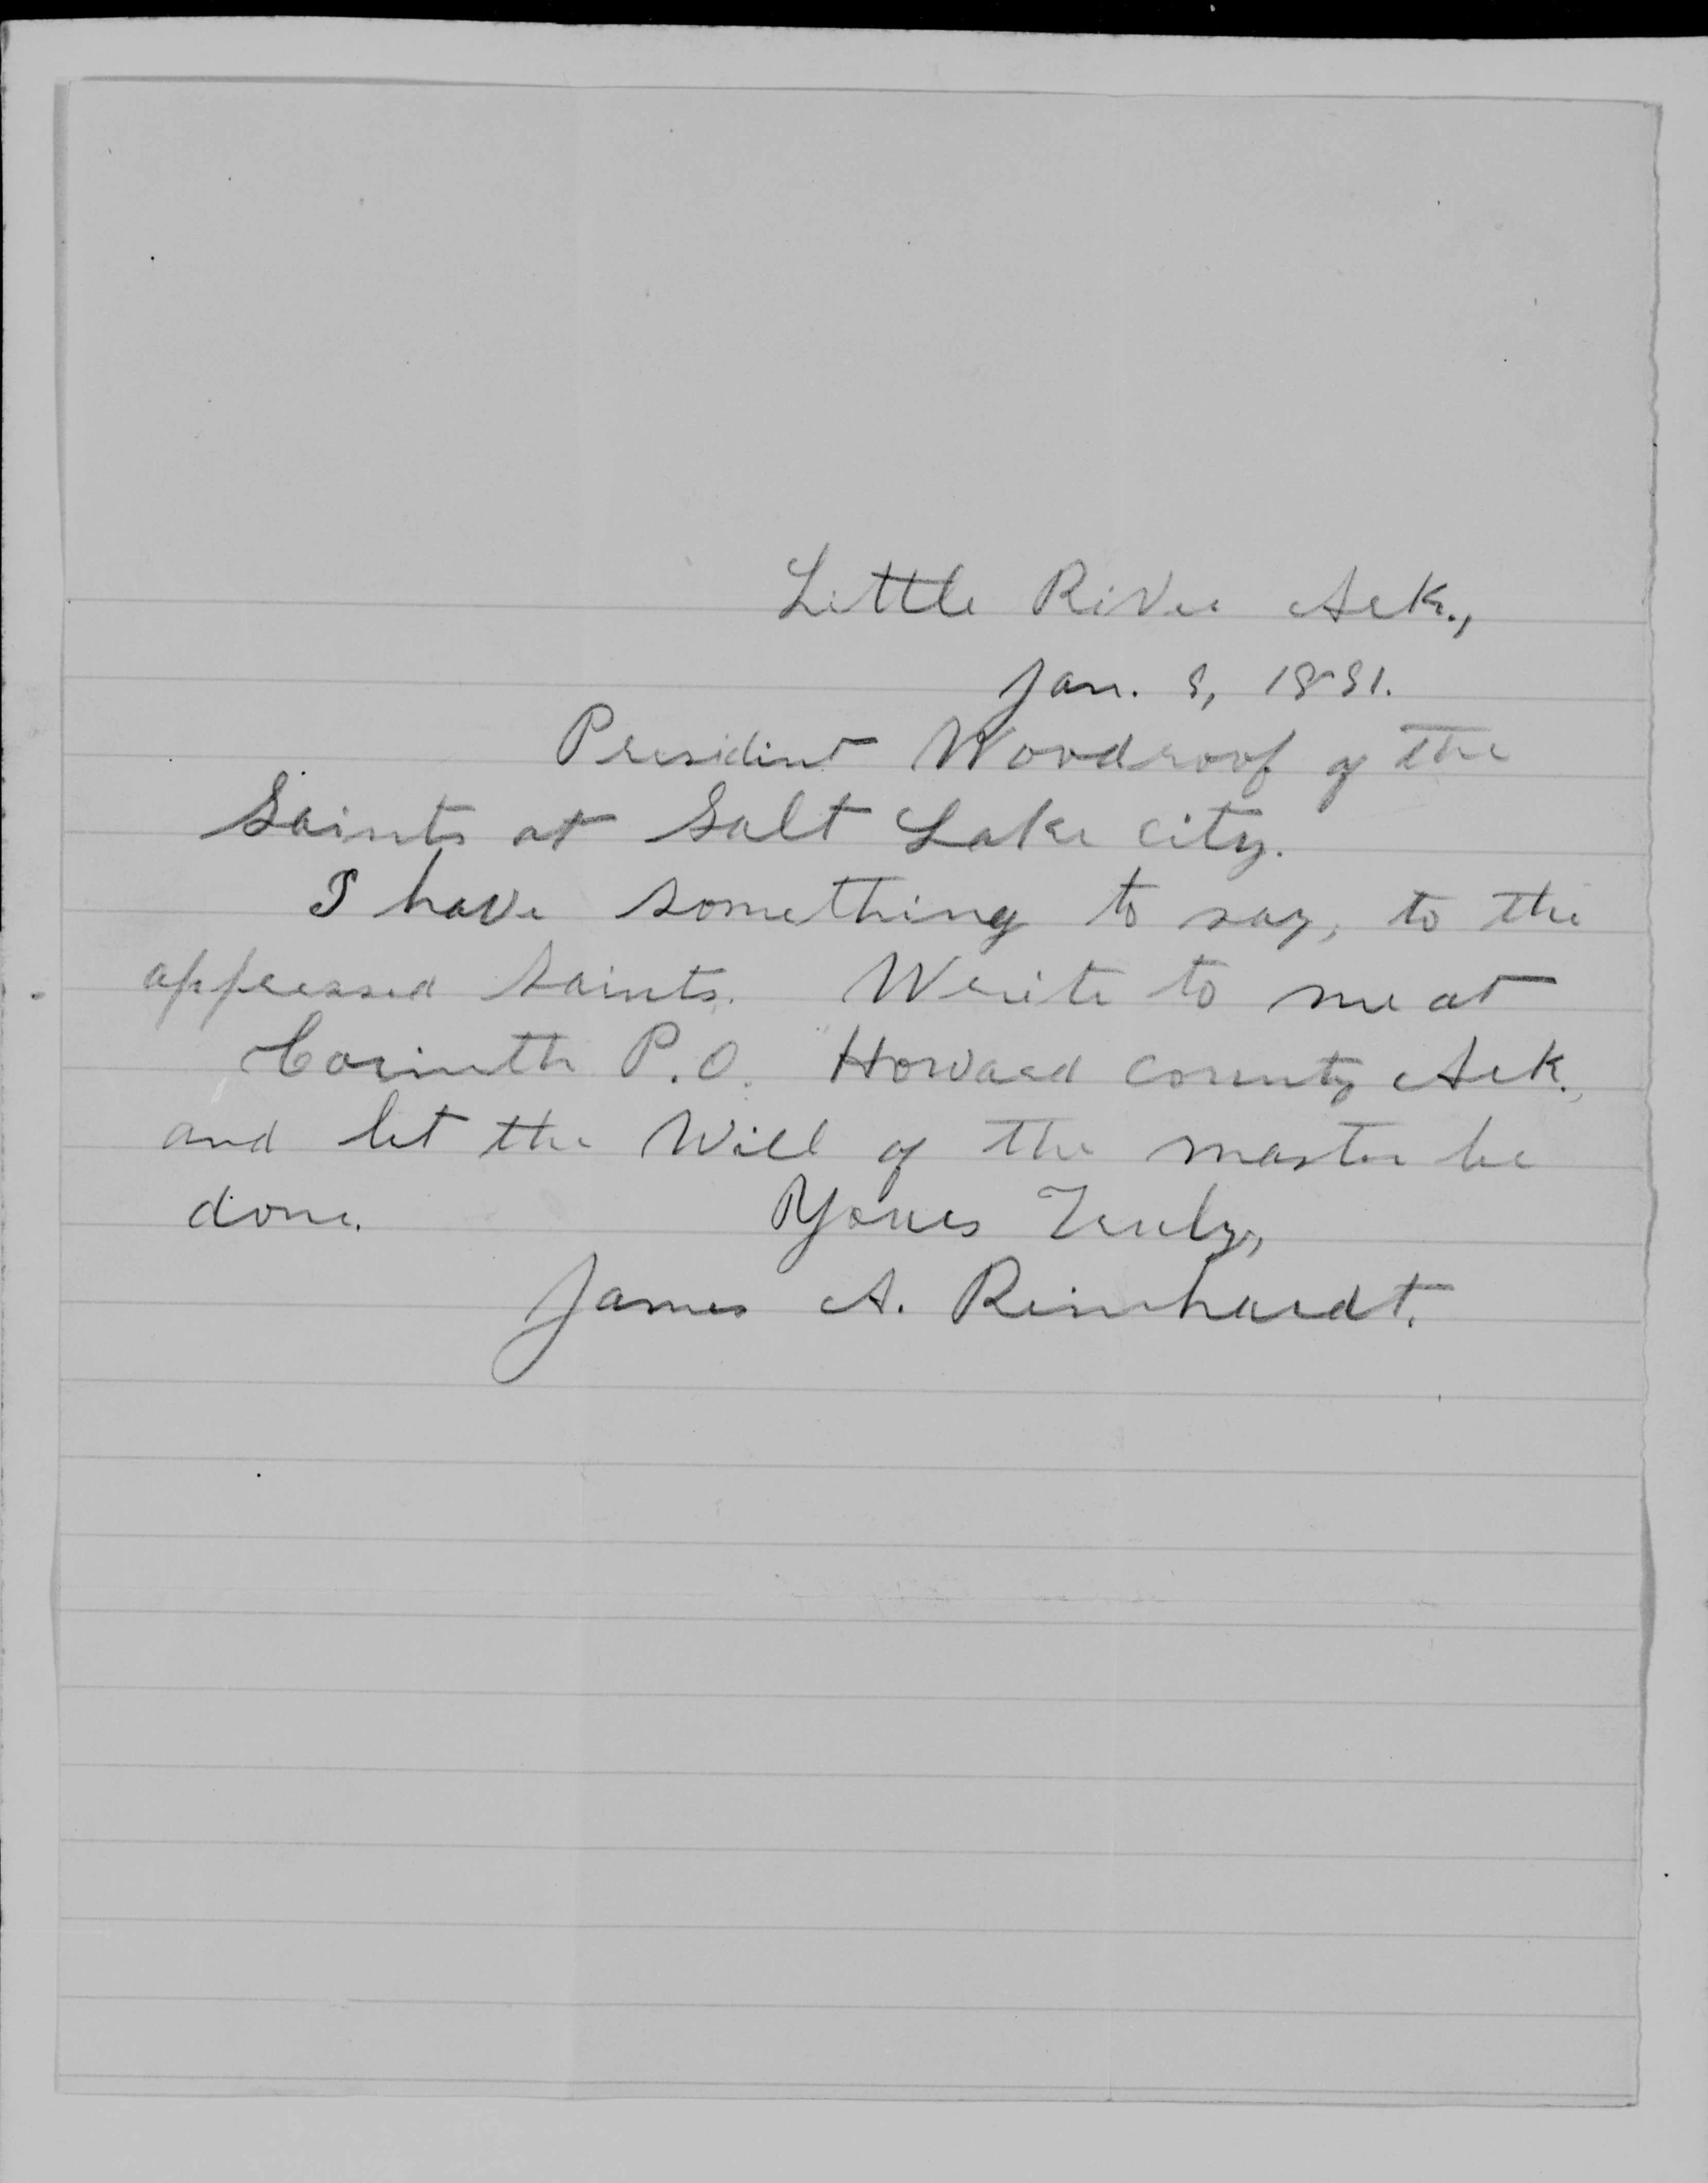 Little River Ark.,
Jan. 9, 1891.
President Woodroof of the
Saints at Salt Lake City.
I have something to say, to the
oppressed Saints. Write to me at
Corinth P.O. Howard County Ark.,
and let the Will of the master be
done. Yours Truly,
James A. Reinhardt.